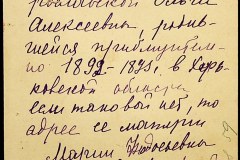 Алексеевны, родив-
шейся приблизитель-
но 1892-1893, в Харь-
ковской области
если таковой нет, то
адрес её матери
Марии Федосьевны